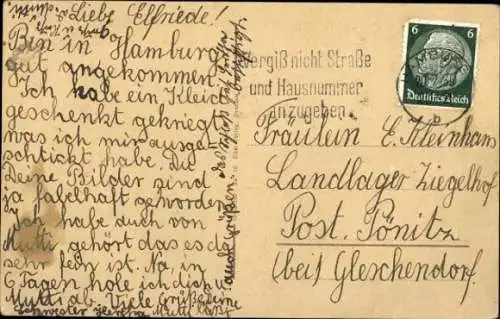 Liebe Elfriede!
Bin in Hamburg
gut angekommen.
Ich habe ein Kleid
geschenkt gekriegt
was ich mir ausge-
schückt habe. Die
Deine Bilder sind
ja fabelhaft geworden.
Ich habe auch von
Mutti gehört das es da
sehr fein ist. Na, in
6 Tagen hole ich dich u.
Mutti ab. Viele Grüße deine
Schwester Hertha Mutti läßt
auch grüßen
6
6
Deutsches Reich
Vergiß nicht Straße
und Hausnummer
anzugeben
Fräulein E. Kleinhans
Landlager Ziegelhof
Post. Pönitz
(bei) Gleschendorf.